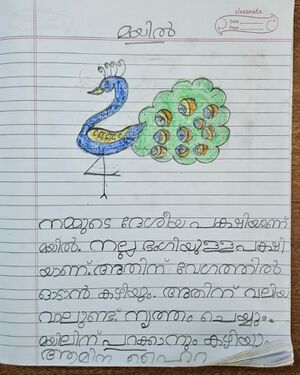 classmate
Date
Page
മയിൽ
നമ്മുടെ ദേശീയ പക്ഷിയാണ്
മയിൽ. നല്ല ഭംഗിയുള്ള പക്ഷി
യാണ്. അതിന് വേഗത്തിൽ
ഓടാൻ കഴിയും. അതിന് വലിയ
വാലുണ്ട്. നൃത്തം ചെയ്യും.
മയിലിന് പറക്കാനും കഴിയും